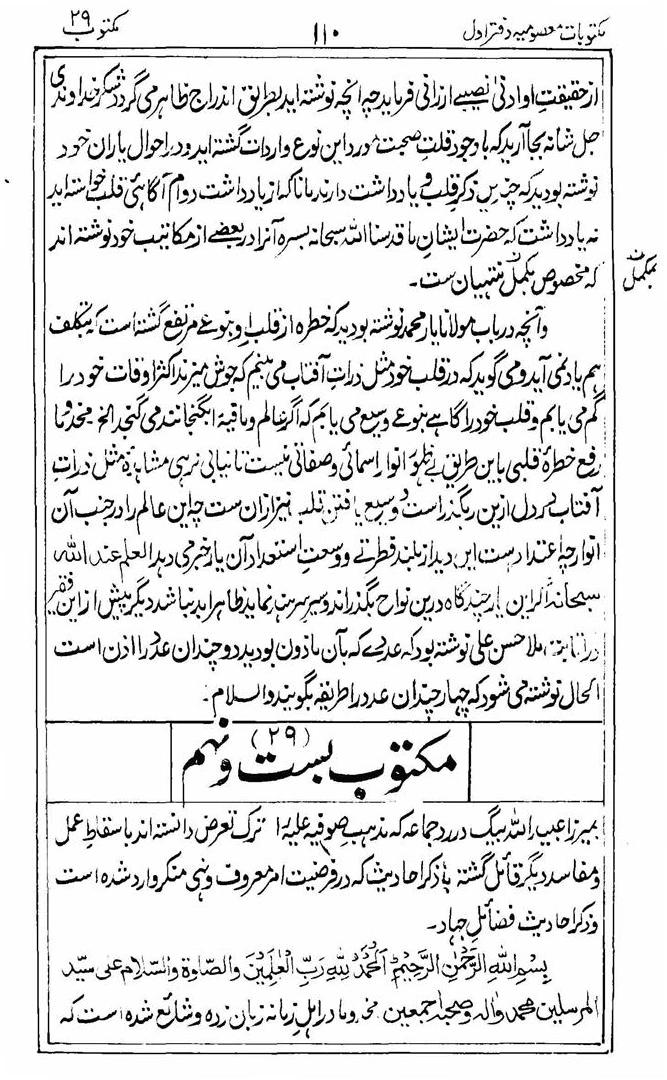 مکتوبات معصومیہ دفتر اول
۱۱۰
مکتوب ۲۹
از حقیقتِ او ادنیٰ نصیبے ارزانی فرماید چہ انچہ نوشتہ اید بطریق اندراج ظاہر می گردد شکر خداوندی
جل شانہ بجا آرید کہ باوجود قلتِ صحبت مورد این نوع واردات گشتہ اید و در احوال یاران خود
نوشتہ بودید کہ چندیں ذکر قلب و یادداشت دارند مانا کہ از یادداشت دوام آگاہئ قلب خواستہ اید
نہ یادداشت کہ حضرت ایشانِ ما قدسنا اللہ سبحانہ بسرہ آنرا در بعضے از مکاتیب خود نوشتہ اند
کہ مخصوص بکمل منتہیان ست۔
بمکملان
و آنچہ در باب مولانا یار محمد نوشتہ بودید کہ خطرہ از قلب او بنوعے مرتفع گشتہ است کہ بتکلف
ہم یاد نمی آید و می گوید کہ در قلب خود مثل ذراتِ آفتاب می بینم کہ جوش میزند اکثر اوقات خود را
گم می یابم و قلب خود را گاہے بنوعے وسیع می یابم کہ اگر عالم و مافیہ را بگنجانند می گنجد الخ مخدوما
رفع خطرۂ قلبی باین طریق بے ظہور انوار اسمائی و صفاتی نیست تا نیابی نرہی مشاہدۂ مثل ذراتِ
آفتاب بر دل ازین رہگذر است و وسیع یافتن قلب نیز ازان ست چہ این عالم را در جنب آن
انوار چہ اعتداد ست این دید از بلند فطرتے و وسعتِ استعداد آن یار خبر می دہد العلم عند اللہ
سبحانہ اگر این یار چند گاہ درین نواح بگذراند و سیر سرہند نماید ظاہرا بد نباشد دیگر پیش از این فقیر
ملا حسن علی نوشتہ بود کہ عددے کہ بآن ماذون بودید دو چندان عدد را اذن است
الحال نوشتہ می شود کہ چہار چندان عدد را طریقہ بگویند والسلام۔
مکتوب بست و نہم (۲۹)
بمیرزا عبید اللہ بیگ در رد جماعہ کہ مذہب صوفیہ علیہ را ترک تعرض دانستہ اند با سقاطِ عمل
و مفاسد دیگر قائل گشتہ با ذکر احادیث کہ در فرضیت امر معروف و نہی منکر وارد شدہ است
و ذکر احادیث فضائلِ جہاد۔
بِسْمِ اللهِ الرَّحْمٰنِ الرَّحِيْمِ اَلْحَمْدُ لِلّٰهِ رَبِّ الْعٰلَمِيْنَ والصَّلوٰة والسَّلام علی سيّد
المرسلين محمد واٰله وصحبه اجمعين مخدوما در اہل زمانہ زبان زدہ و شائع شدہ است کہ